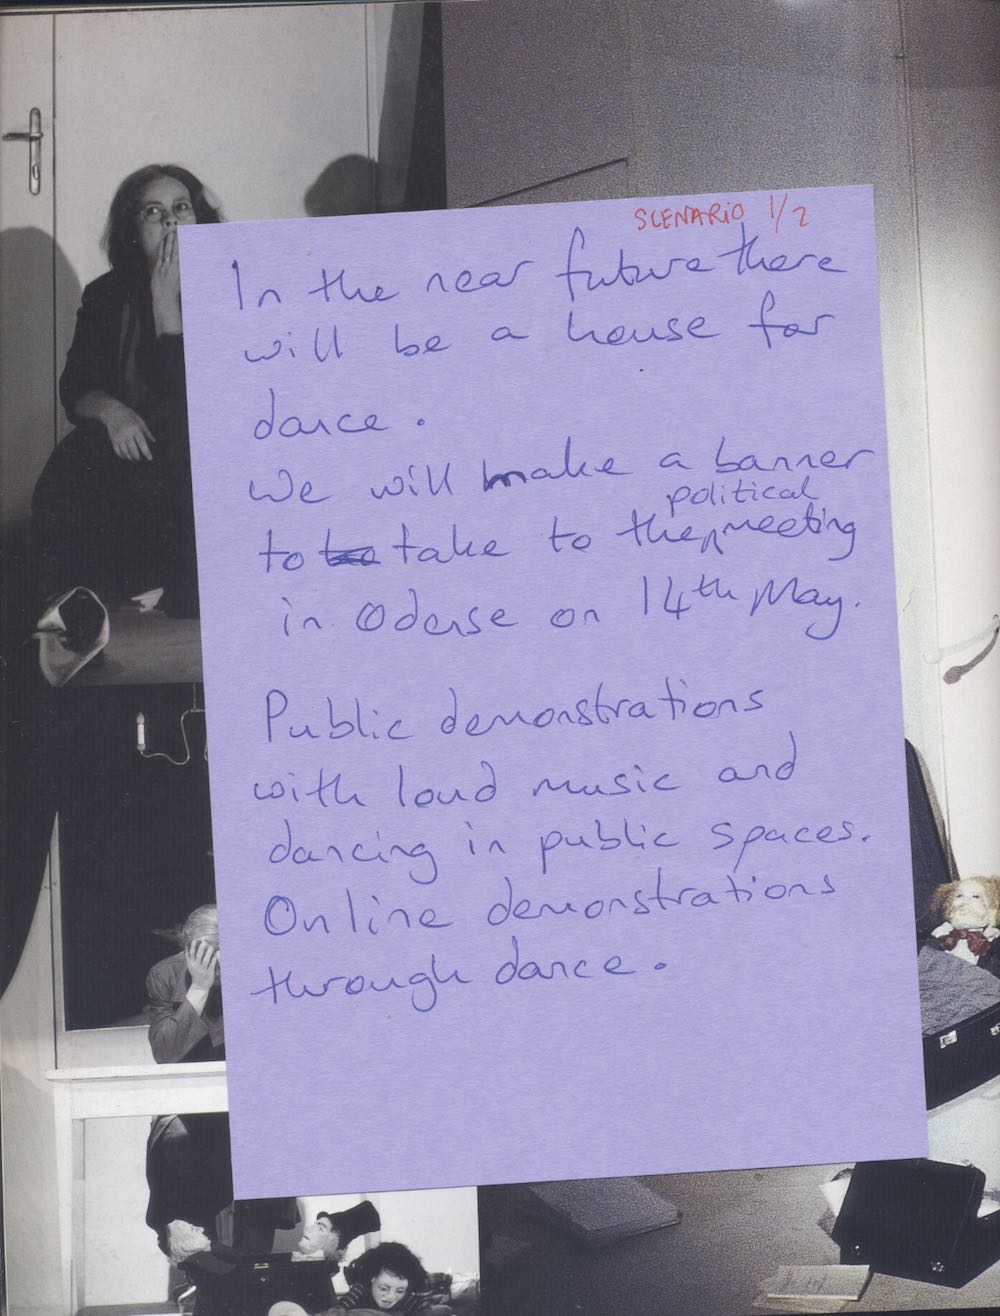 SCENARIO 1/2
In the near future there
will be a house for
dance.
We will make a banner
political
to take to the meeting
in Odense on 14th May.
Public demonstrations
with loud music and
dancing in public spaces.
Online demonstrations
through dance.